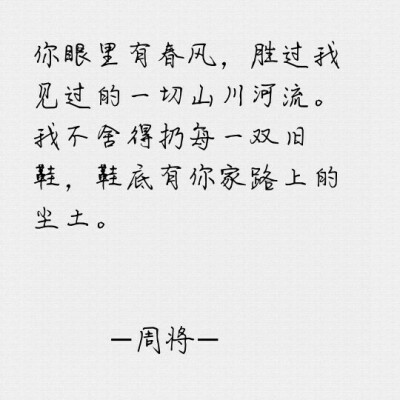 你眼里有春风，胜过我
见过的一切山川河流。
我不舍得扔每一双旧
鞋，鞋底有你家路上的
尘土。
—周将—